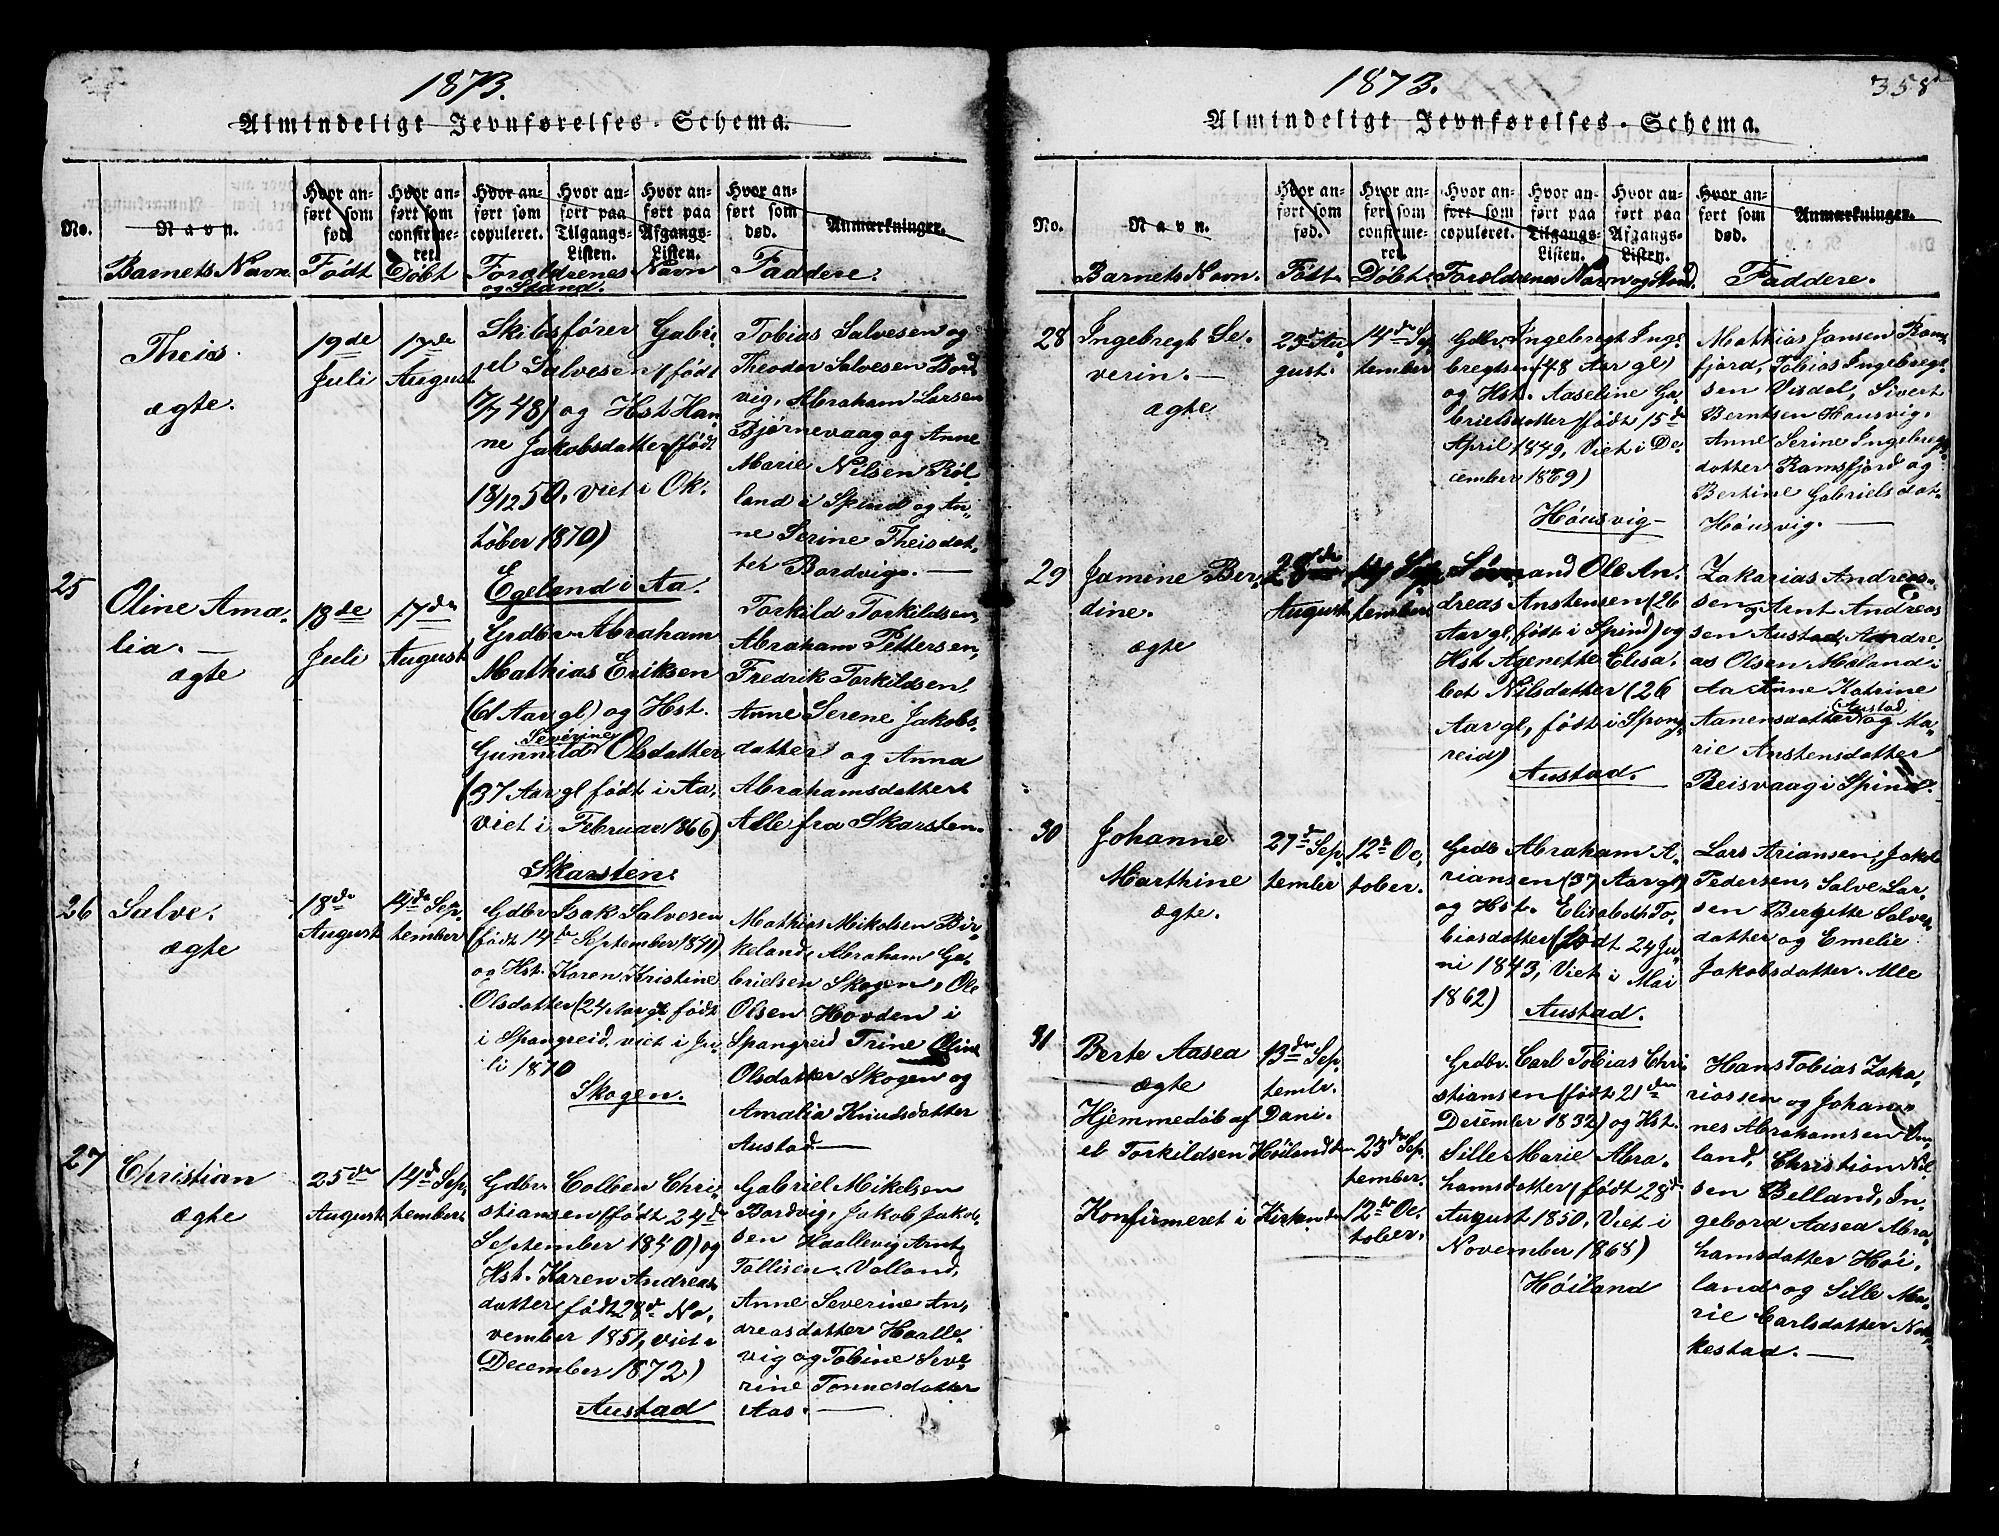 1873.
Almindeligt Jevnførelses-Schema.
No.
Navn.
Hvor anført som født
Hvor anført som confirmeret
Hvor anført som copuleret.
Hvor anført paa Tilgangs-Listen.
Hvor anført paa Afgangs-Listen.
Hvor anført som død.
Anmærkninger.
Barnets Navn
Født
Døbt
Forældrenes Navn
og Stand.
Faddere.
Theis
ægte.
19de
Juli
17de
August
Skibsfører Gabri-
el Salvesen (født
17/7 48) og Hst Han-
ne Jakobsdatter (født
18/12 50, viet i Ok-
tober 1870)
Egeland i Aa.
Tobias Salvesen og
Theodor Salvesen Bord-
vig, Abraham Larsen
Bjørnevaag og Anne
Marie Nilsen Røl-
land i Spind og An-
ne Serine Theisdat-
ter Bordvig. —
25
Oline Ama-
lia. —
ægte
18de
Juli
17de
August
Grdbr Abraham
Mathias Eriksen
(61 Aar gl) og Hst.
Severine
Gunnild Olsdatter
(37 Aar gl født i Aa,
viet i Februar 1866)
Skarsten.
Torkild Torkildsen,
Abraham Pettersen,
Fredrik Torkildsen,
Anne Serene Jakobs-
datter og Anna
Abrahamsdatter
Alle fra Skarsten.
26
Salve.
ægte
18de
August
14de Sep-
tember
Gdbr Isak Salvesen
(født 14de September 1841)
og Hst. Karen Kristine
Olsdatter (24 Aar gl født
i Spangreid, viet i Ju-
li 1870
Skogen.
Mathias Mikalsen Bir-
keland, Abraham Ga-
brielsen Skogen, Ole
Olsen Hovden i
Spangreid Trine Oline
Olsdatter Skogen og
Amalia Knudsdatter
Austad —
27
Christian
ægte
25de
August
14de Sep-
tember
Gdbr Colben Chri-
stiansen (født 24de
September 1840) og
Hst. Karen Andreas-
datter født 28de No-
vember 1851, viet i
December 1872)
Austad
Gabriel Mikelsen
Bordvig, Jakob Jakob-
sen Haallevig Arnt
Tallisen Valland,
Anne Severine An-
dreasdatter Haalle-
vig og Tobine Seve-
rine Tønnesdatter
Aas. —
1873.
358
Almindeligt Jevnførelses-Schema.
No.
Navn.
Hvor anført som fød.
Hvor anført som confirmeret
Hvor anført som copuleret.
Hvor anført paa Tilgangs-Listen.
Hvor anført paa Afgangs-Listen.
Hvor anført som død.
Anmærkninger.
Barnets Navn.
Født.
Døbt.
Forældrenes Navn og Stand.
Faddere.
28
Ingebregt Se-
verin. —
ægte
23de Au-
gust.
14de Sep-
tember
Gdbr Ingebregt Inge-
bregtsen (48 Aar gl)
og Hst. Aaseline Ga-
brielsdatter (født 15de
April 1849, Viet i De-
cember 1869)
Høusvig —
Mathias Jansen Rams-
fjord, Tobias Ingebregt-
sen Visdal, Sivert
Berntsen Hausvig.
Anne Serine Ingebregts-
datter Ramsfjord og
Bertine Gabrielsdat-
Høusvig. —
29
Jamine Ber-
dine.
ægte
28de
August
14 Sep-
tember
Sømand Ole An-
dreas Anstensen (26
Aar gl, født i Spind) og
Hst Agenette Elisa-
bet Nilsdatter (26
Aar gl, født i Spang-
reid)
Austad.
Zakarias Andreas-
sen og Arnt Andreas-
sen Austad, Andre-
as Olsen Møland i
Aa Anne Katrine
(Austad
Aanensdatter og Ma-
rie Anstensdatter
Reisvaag i Spind.
30
Johanne
Marthine
ægte.
27de Sep-
tember
12te Oc-
tober.
Grdbr Abraham A-
riansen (37 Aar gl)
og Hst. Elisabeth To-
biasdatter (født 24 Ju-
ni 1843, Viet i Mai
1862)
Austad.
Lars Ariansen, Jakob
Pedersen, Salve Lar-
sen Bergitte Salves-
datter og Emelie
Jakobsdatter. Alle
31
Berte Aasea
ægte
Hjemmedøb af Dani-
el Torkildsen Høiland den
13de Sep-
tembr.
23de Sep-
tember.
Konfirmeret i Kirken den
12te Oc-
tober.
Grdbr. Carl Tobias Chri-
stiansen (født 21de
Desember 1832) og Hst.
Sille Marie Abra-
hamsdatter (født 28de
August 1850, Viet i
November 1868)
Høiland
Hans Tobias Zaka-
riassen og Johan-
nes Abrahamsen
land, Christian Nil-
sen Belland, In-
gebord Aasea Abra-
hamsdatter Høi-
land og Sille Ma-
rie Carlsdatter
kestad. —